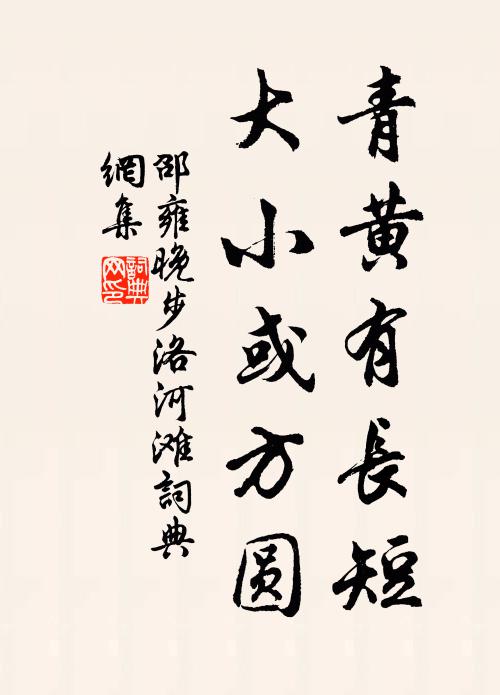 青黃有長短
大小或方圓
邵雍晚步洛河滩詞典
網集
詞典
网印